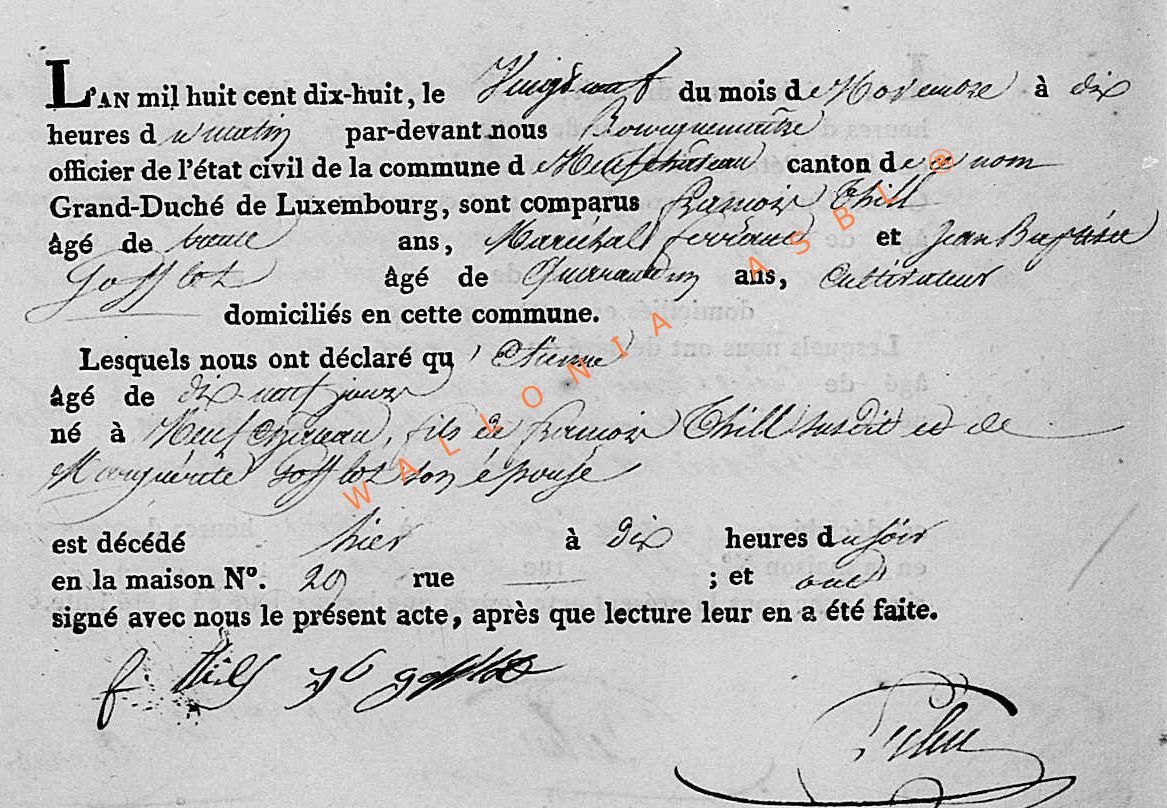 L'AN mil huit cent dix-huit, le Vingt neuf du mois de Novembre à dix
heures du matin par-devant nous Bourguemaître
officier de l'état civil de la commune de Neufchâteau canton de ce nom
Grand-Duché de Luxembourg, sont comparus François Thill
âgé de trente ans, Maréchal ferrant et Jean Baptiste
Gofflot âgé de Quarante un ans, Cultivateur
domiciliés en cette commune.
Lesquels nous ont déclaré qu'Etienne
âgé de dix neuf jours
né à Neufchâteau, fils de François Thill susdit et de
Marguerite Gofflot son épouse
est décédé hier à dix heures du soir
en la maison N°. 20 rue ; et ont
signé avec nous le présent acte, après que lecture leur en a été faite.
f. thill gofflot
WALLONIA ASBL ®